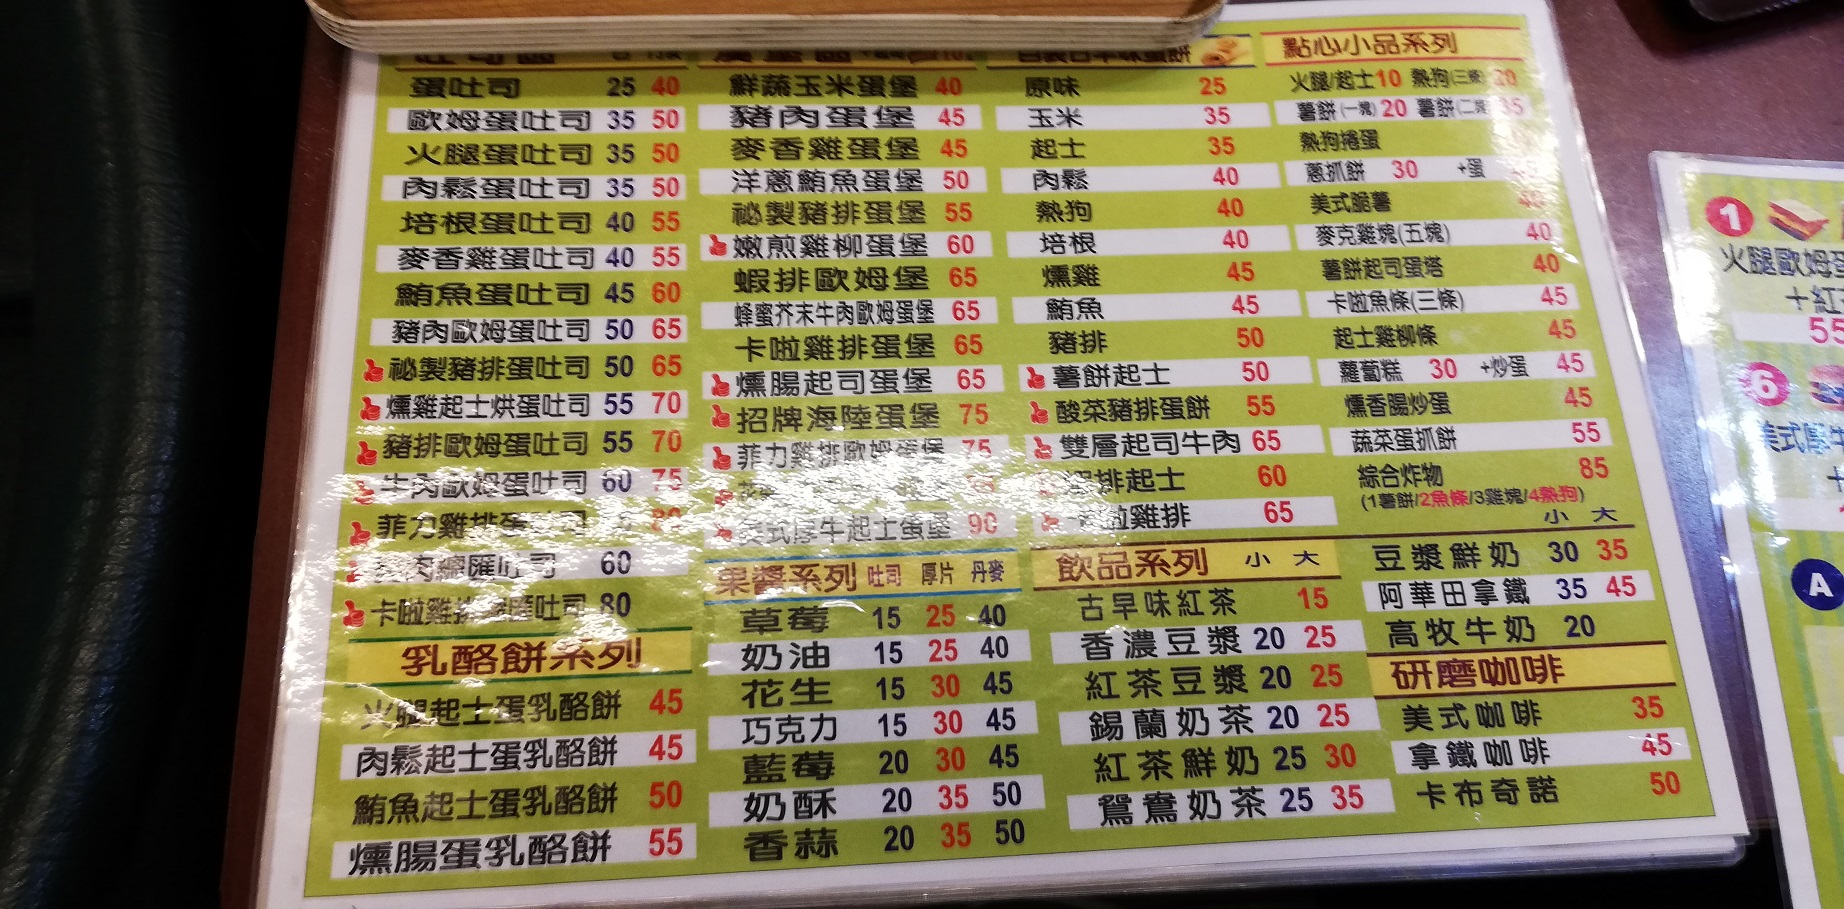 蛋吐司 25 40
歐姆蛋吐司 35 50
火腿蛋吐司 35 50
肉鬆蛋吐司 35 50
培根蛋吐司 40 55
麥香雞蛋吐司 40 55
鮪魚蛋吐司 45 60
豬肉歐姆蛋吐司 50 65
祕製豬排蛋吐司 50 65
燻雞起士烘蛋吐司 55 70
豬排歐姆蛋吐司 55 70
牛肉歐姆蛋吐司 60 75
菲力雞排蛋吐司 80
肉總匯吐司 60
卡啦雞排總匯吐司 80
乳酪餅系列
火腿起士蛋乳酪餅 45
肉鬆起士蛋乳酪餅 45
鮪魚起士蛋乳酪餅 50
燻腸蛋乳酪餅 55
鮮蔬玉米蛋堡 40
豬肉蛋堡 45
麥香雞蛋堡 45
洋蔥鮪魚蛋堡 50
祕製豬排蛋堡 55
嫩煎雞柳蛋堡 60
蝦排歐姆堡 65
蜂蜜芥末牛肉歐姆蛋堡 65
卡啦雞排蛋堡 65
燻腸起司蛋堡 65
招牌海陸蛋堡 75
菲力雞排歐姆蛋堡 75
美式厚牛起士蛋堡 90
果醬系列 吐司 厚片 丹麥
草莓 15 25 40
奶油 15 25 40
花生 15 30 45
巧克力 15 30 45
藍莓 20 30 45
奶酥 20 35 50
香蒜 20 35 50
自製古早味蛋餅
原味 25
玉米 35
起士 35
肉鬆 40
熱狗 40
培根 40
燻雞 45
鮪魚 45
豬排 50
薯餅起士 50
酸菜豬排蛋餅 55
雙層起司牛肉 65
排起士 60
卡啦雞排 65
飲品系列 小 大
古早味紅茶 15
香濃豆漿 20 25
紅茶豆漿 20 25
錫蘭奶茶 20 25
紅茶鮮奶 25 30
鴛鴦奶茶 25 35
點心小品系列
火腿/起士10 熱狗(三條) 20
薯餅(一塊) 20 薯餅(二塊) 35
熱狗捲蛋
蔥抓餅 30 +蛋
美式脆薯 40
麥克雞塊(五塊) 40
薯餅起司蛋塔 40
卡啦魚條(三條) 45
起士雞柳條 45
蘿蔔糕 30 +炒蛋 45
燻香腸炒蛋 45
蔬菜蛋抓餅 55
綜合炸物 85
(1薯餅/2魚條/3雞塊/4熱狗)
小 大
豆漿鮮奶 30 35
阿華田拿鐵 35 45
高牧牛奶 20
研磨咖啡
美式咖啡 35
拿鐵咖啡 45
卡布奇諾 50
1
火腿歐姆蛋
+紅
55
6
美式厚牛
+
A